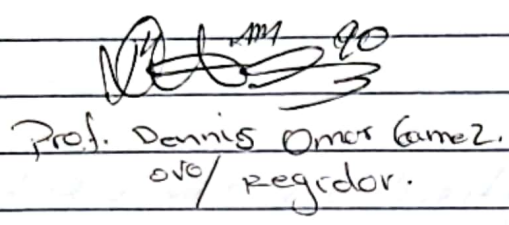 Prof. Dennis Omar Gamez.
Regidor.